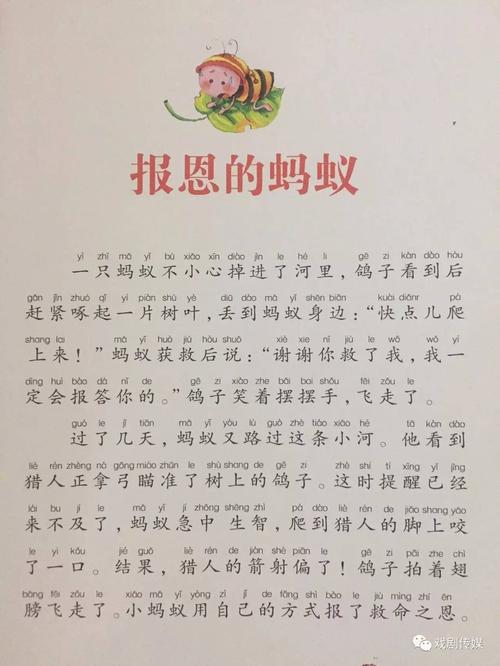 报恩的蚂蚁
yì zhī mǎ yǐ bù xiǎo xīn diào jìn le hé lǐ gē zi kàn dào hòu
一只蚂蚁不小心掉进了河里，鸽子看到后
gǎn jǐn zhuó qǐ yí piàn shù yè diū dào mǎ yǐ shēn biān kuài diǎnr pá
赶紧啄起一片树叶，丢到蚂蚁身边：“快点儿爬
shang lai mǎ yǐ huò jiù hòu shuō xiè xie nǐ jiù le wǒ wǒ yí
上来！”蚂蚁获救后说：“谢谢你救了我，我一
dìng huì bào dá nǐ de gē zi xiào zhe bǎi bai shǒu fēi zǒu le
定会报答你的。”鸽子笑着摆摆手，飞走了。
guò le jǐ tiān mǎ yǐ yòu lù guò zhè tiáo xiǎo hé tā kàn dào
过了几天，蚂蚁又路过这条小河。他看到
liè rén zhèng ná gōng miáo zhǔn le shù shang de gē zi zhè shí tí xǐng yǐ jīng
猎人正拿弓瞄准了树上的鸽子。这时提醒已经
lái bu jí le mǎ yǐ jí zhōng shēng zhì pá dào liè rén de jiǎo shang yǎo
来不及了，蚂蚁急中生智，爬到猎人的脚上咬
le yì kǒu jié guǒ liè rén de jiàn shè piān le gē zi pāi zhe chì
了一口。结果，猎人的箭射偏了！鸽子拍着翅
bǎng fēi zǒu le xiǎo mǎ yǐ yòng zì jǐ de fāng shì bào le jiù mìng zhī ēn
膀飞走了。小蚂蚁用自己的方式报了救命之恩。
戏剧传媒